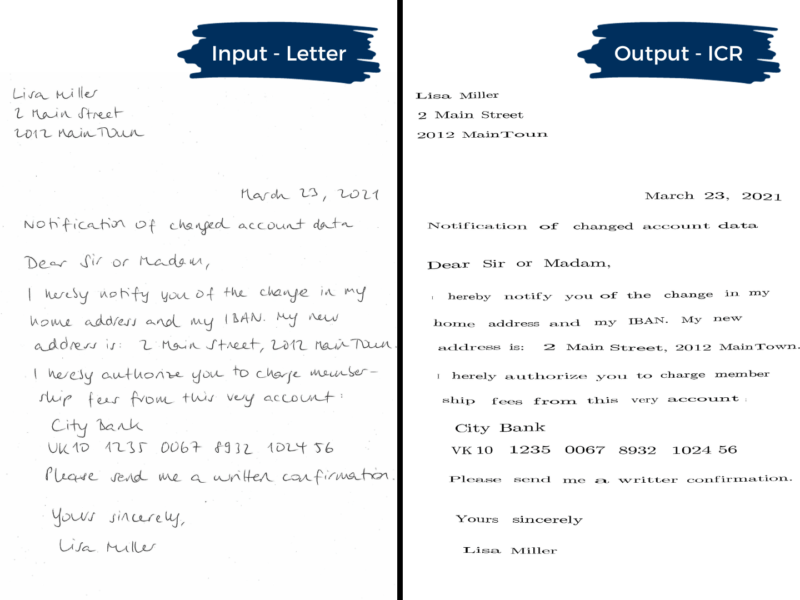 Input - Letter
Lisa Miller
2 Main Street
2012 MainTown
March 23, 2021
Notification of changed account data
Dear Sir or Madam,
I hereby notify you of the change in my
home address and my IBAN. My new
address is: 2 Main Street, 2012 MainTown.
I hereby authorize you to charge member-
ship fees from this very account:
City Bank
VK10 1235 0067 8932 1024 56
Please send me a written confirmation.
Yours sincerely,
Lisa Miller
Output - ICR
Lisa Miller
2 Main Street
2012 MainToun
March 23, 2021
Notification of changed account data
Dear Sir or Madam,
I hereby notify you of the change in my
home address and my IBAN. My new
address is: 2 Main Street, 2012 MainTown.
I herely authorize you to charge member
ship fees from this very account :
City Bank
VK 10 1235 0067 8932 1024 56
Please send me a writter confirmation.
Yours sincerely
Lisa Miller